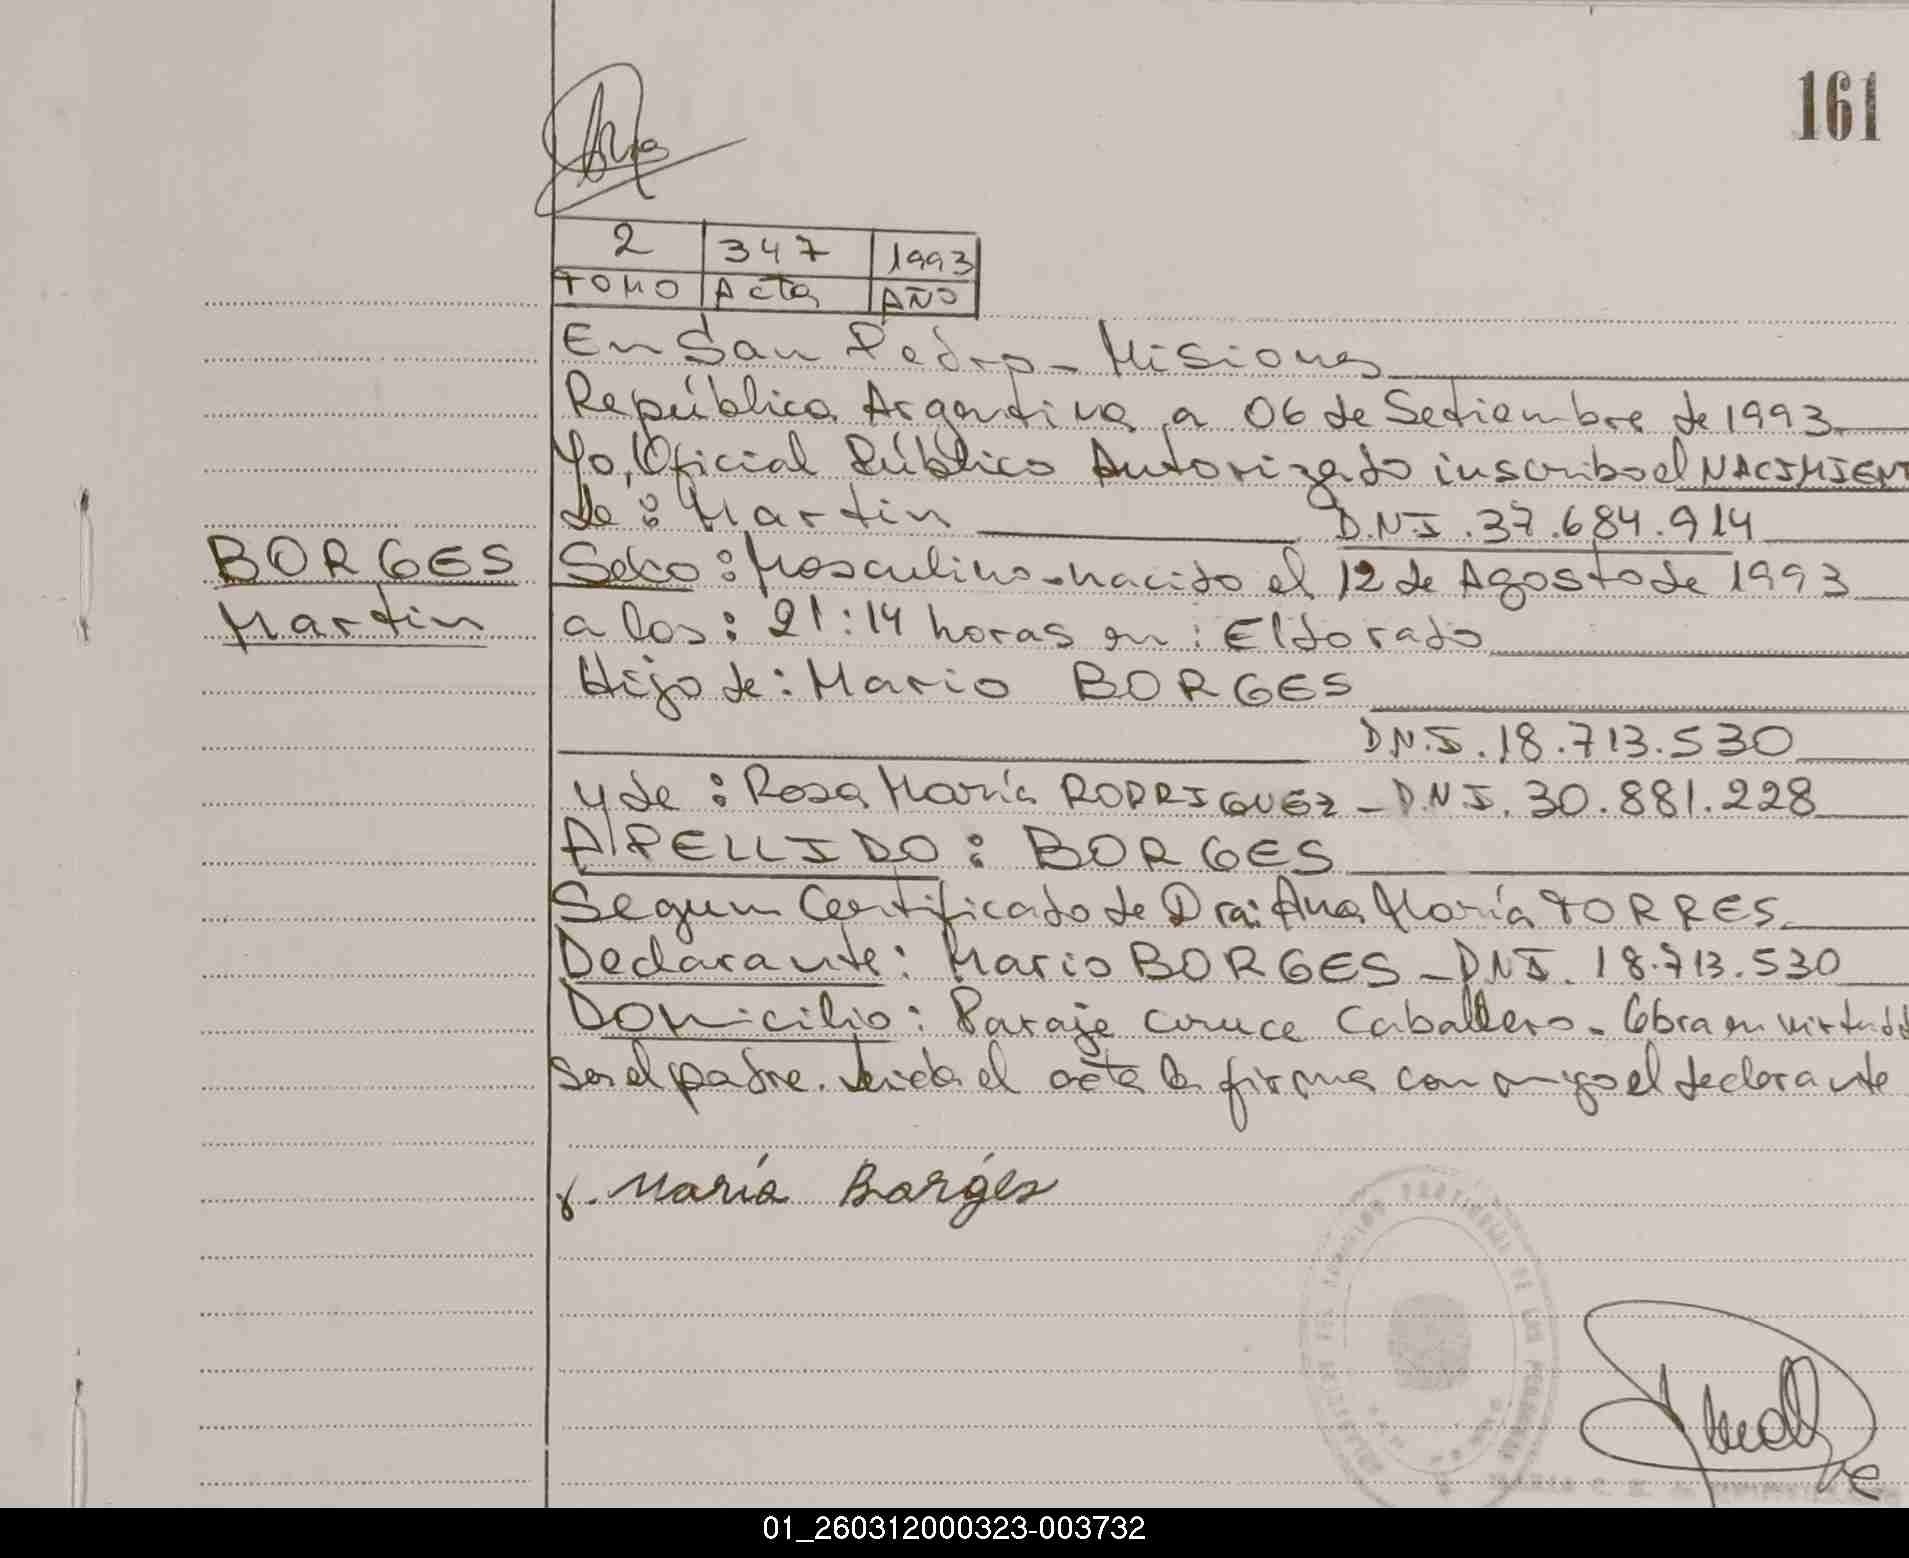 161
2 347 1993
TOMO Acta AÑO
En San Pedro - Misiones
República Argentina a 06 de Setiembre de 1993
Yo, Oficial Público Autorizado inscribo el NACIMIENT
de: Martin D.N.I. 37.684.914
BORGES Sexo: Masculino - nacido el 12 de Agosto de 1993
Martin a los: 21:14 horas en: Eldorado
Hijo de: Mario BORGES
D.N.I. 18.713.530
y de: Rosa María RODRIGUEZ - D.N.I. 30.881.228
APELLIDO: BORGES
Segun Certificado de Dra: Ana María TORRES
Declarante: Mario BORGES - DNI. 18.713.530
Domicilio: Paraje cruce Caballero - Obra en virtud d
ser el padre. Leida el acta la firma con migo el declarante
María Borges
01_260312000323-003732